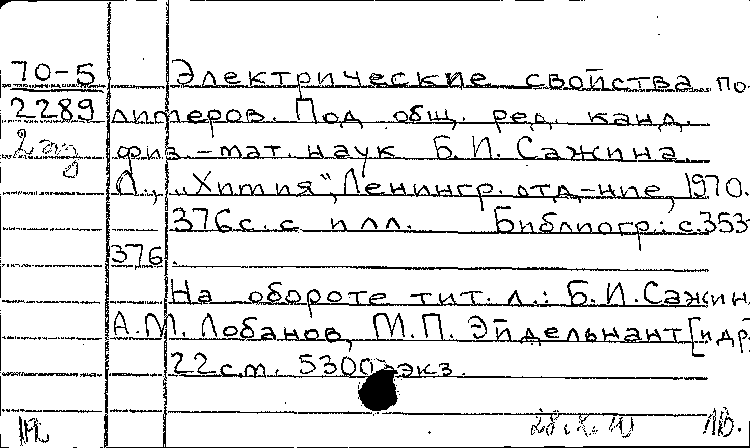 70-5 Электрические свойства по-
2289 лимеров. Под общ. ред. канд.
2 аз физ.-мат. наук Б.И. Сажина.
Л., „Химия“, Ленингр. отд-ние, 1970.
376 с. с илл. Библиогр.: с. 353-
376.
На обороте тит. л.: Б.И. Сажин,
А.М. Лобанов, М.П. Эйдельнант [и др.]
22 см. 5300 экз.
ЛВ.